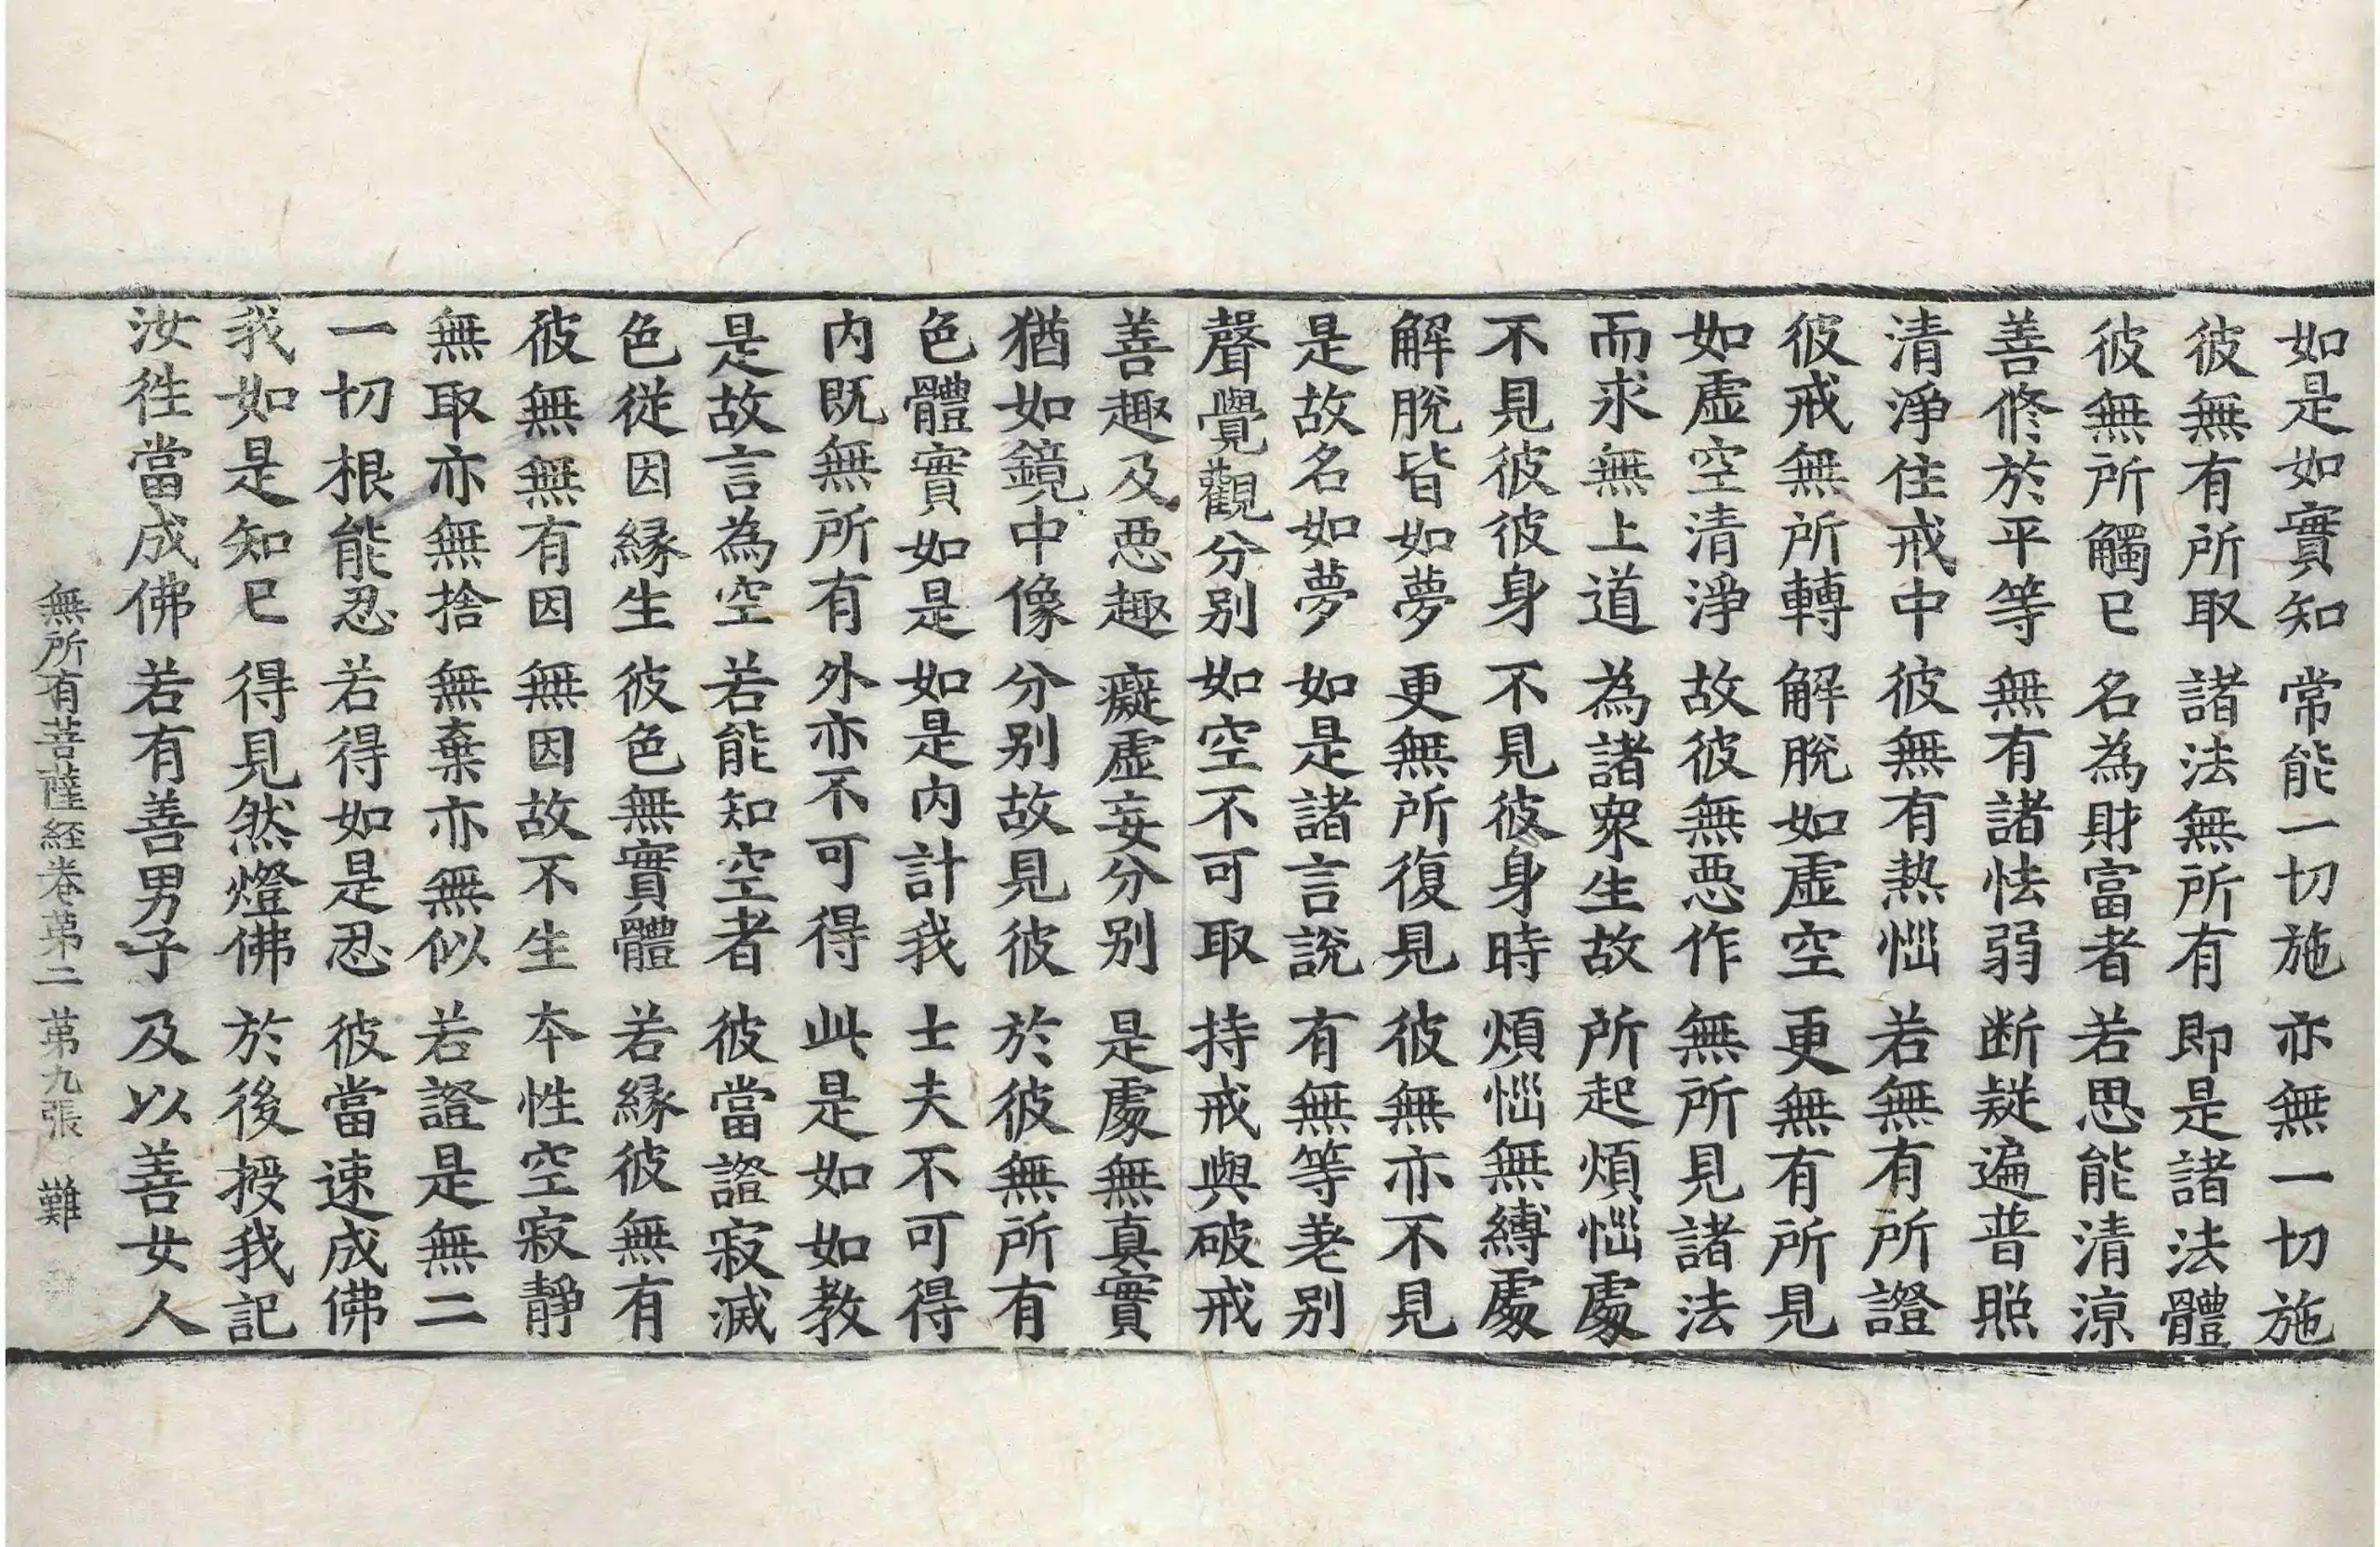 如是如實知 常能一切施 亦無一切施
彼無有所取 諸法無所有 即是諸法體
彼無所觸已 名為財富者 若思能清涼
善修於平等 無有諸怯弱 断疑遍普照
清淨住戒中 彼無有熱惱 若無有所證
彼戒無所轉 解脫如虛空 更無有所見
如虛空清淨 故彼無惡作 無所見諸法
而求無上道 為諸衆生故 所起煩惱處
不見彼彼身 不見彼身時 煩惱無縛處
解脫皆如夢 更無所復見 彼無亦不見
是故名如夢 如是諸言說 有無等差別
聲覺觀分別 如空不可取 持戒與破戒
善趣及惡趣 癡虛妄分別 是處無真實
猶如鏡中像 分別故見彼 於彼無所有
色體實如是 如是內計我 士夫不可得
內既無所有 外亦不可得 此是如如教
是故言為空 若能知空者 彼當證寂滅
色從因緣生 彼色無實體 若緣彼無有
彼無無有因 無因故不生 本性空寂靜
無取亦無捨 無棄亦無似 若證是無二
一切根能忍 若得如是忍 彼當速成佛
我如是知已 得見然燈佛 於後授我記
汝徃當成佛 若有善男子 及以善女人
無所有菩薩経卷苐二 苐九張 難